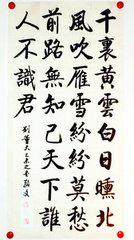 千裏黃雲白日曛北
風吹雁雪紛紛莫愁
前路無知己天下誰
人不識君
別董大乙未之春